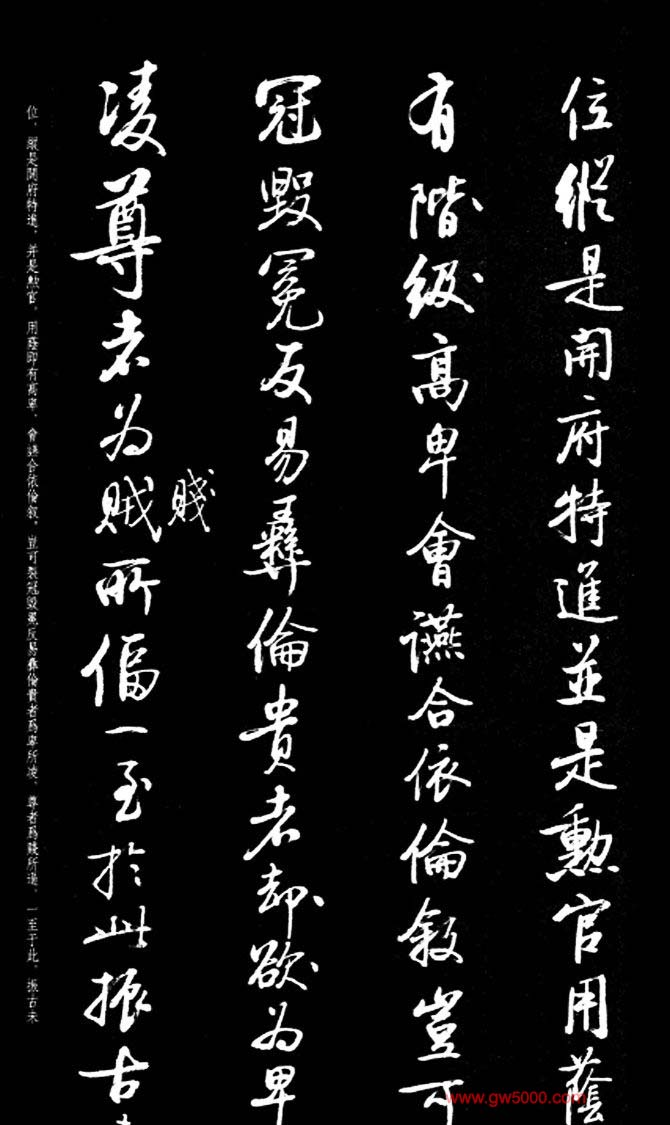 位縱是開府特進並是勳官用蔭
有階級高卑會讌合依倫敘豈可
冠毀冕反易彝倫貴者却欲為卑
凌尊者為賊所偪一至於此振古
賤
位，縱是開府特進，并是勲官，用蔭即有高卑，會讌合依倫叙，豈可裂冠毀冕反易彝倫貴者爲卑所凌，尊者爲賤所逼，一至于此，振古未
www.gw5000.com